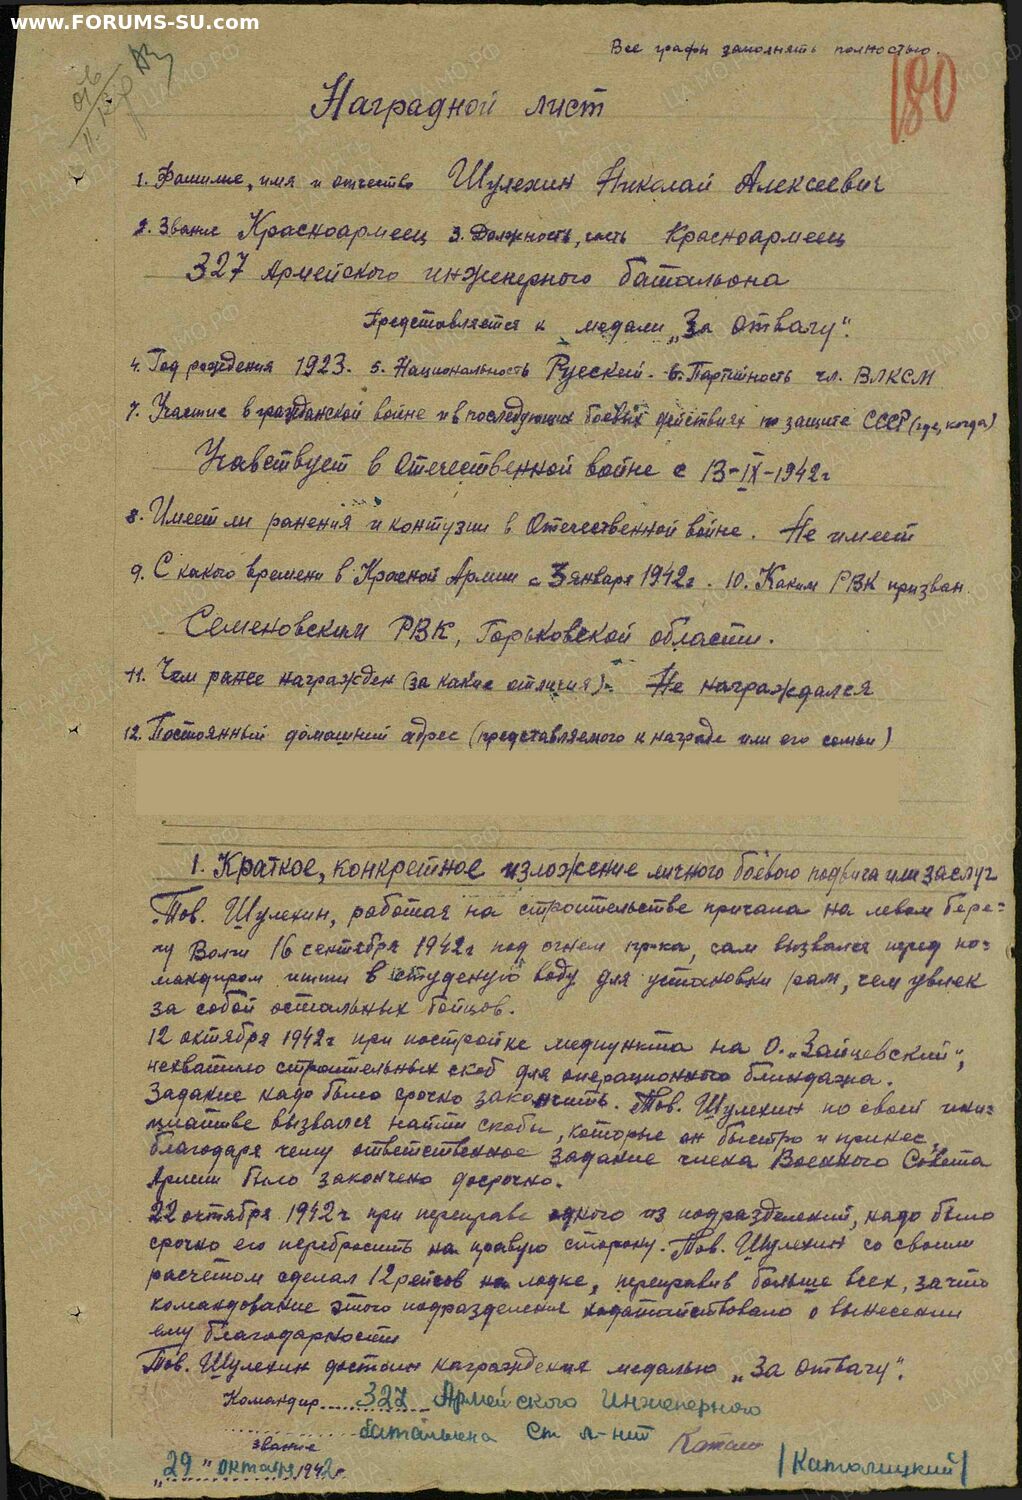 www.FORUMS-SU.com
Все графы заполнять полностью.
180
Наградной лист
1. Фамилие, имя и отчество Шулехин Николай Алексеевич
2. Звание Красноармеец 3. Должность, часть Красноармеец
327 Армейского инженерного батальона
Представляется к медали „За отвагу".
4. Год рождения 1923. 5. Национальность Русский. 6. Партийность чл. ВЛКСМ
7. Участие в гражданской войне и в последующих боевых действиях по защите СССР (где, когда)
Учавствует в Отечественной войне с 13-IX-1942г
8. Имеет ли ранения и контузии в Отечественной войне. Не имеет
9. С какого времени в Красной Армии с 3 января 1942г. 10. Каким РВК призван
Семеновским РВК, Горьковской области.
11. Чем ранее награжден (за какие отличия). Не награждался
12. Постоянный домашний адрес (представляемого к награде или его семьи)
1. Краткое, конкретное изложение личного боевого подвига или заслуг
Тов. Шулехин, работая на строительстве причала на левом бере=
гу Волги 16 сентября 1942г под огнем пр-ка, сам вызвался перед ко=
мандиром итти в студеную воду для установки рам, чем увлек
за собой остальных бойцов.
12 октября 1942г при постройке медпункта на О. „Зайцевский",
нехватило строительных скоб для операционного блиндажа.
Задание надо было срочно закончить. Тов. Шулехин по своей ини=
циативе вызвался найти скобы, которые он быстро и принес,
благодаря чему ответственное задание члена Военного Совета
Армии было закончено досрочно.
22 октября 1942г при переправе одного из подразделений, надо было
срочно его перебросить на правую сторону. Тов. Шулехин со своим
расчетом сделал 12 рейсов на лодке, переправив больше всех, за что
командование этого подразделения ходатайствовало о вынесении
ему благодарности
Тов. Шулехин достоин награждения медалью „За отвагу".
Командир 327 Армейского Инженерного
батальона Ст. л-нит
звание
/Католицкий/
„29" октября 1942г.